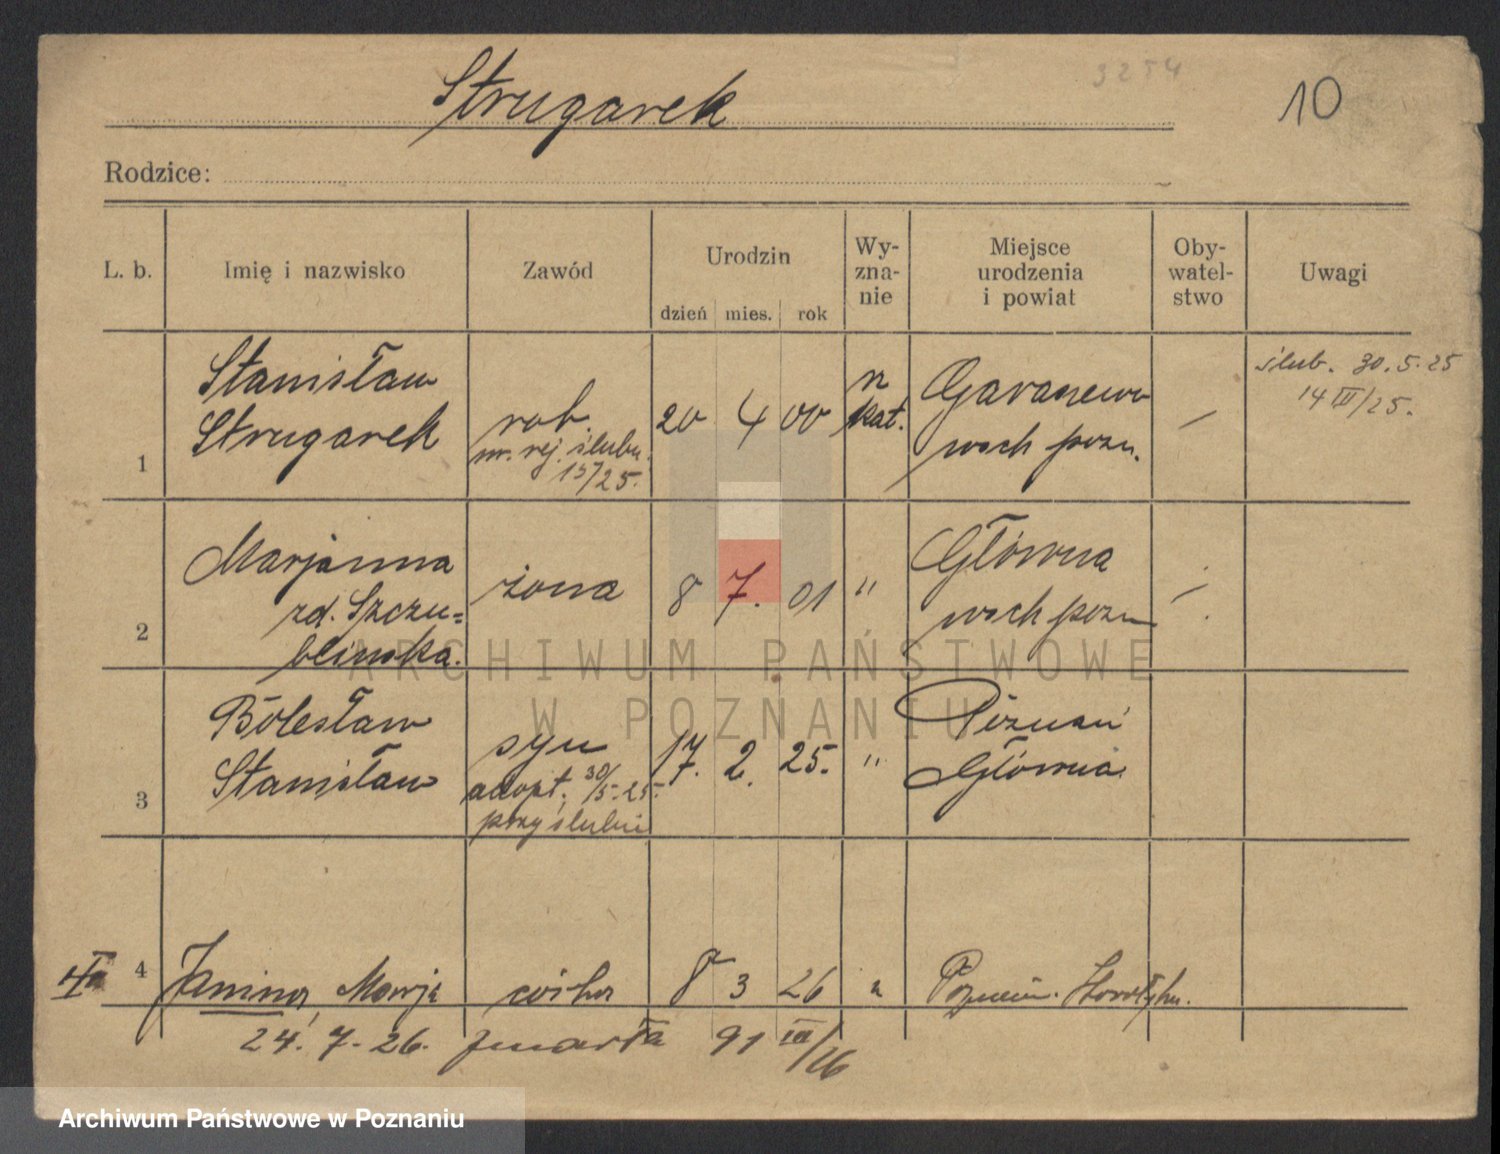 3254
10
Strugarek
Rodzice:
L. b.
Imię i nazwisko
Zawód
Urodzin
dzień mies. rok
Wy-
zna-
nie
Miejsce
urodzenia
i powiat
Oby-
watel-
stwo
Uwagi
1
Stanisław
Strugarek
rob.
nr. rej. ślubu.
157/25.
20 4 00
rz
kat.
wsch pozn.
—
ślub. 30.5.25
14 III/25.
2
Marjanna
zd. Szczu=
blinska.
żona
8 7. 01
"
Główna
wsch pozn
—
3
Bolesław
Stanisław
syn
adopt. 30/5.25.
przy ślubie
17. 2. 25.
"
Poznań
Główna
4
Janina, Marja
córka
8 3 26
"
24. 7. 26. zmarła 91 III/26
ARCHIWUM PAŃSTWOWE
W POZNANIU
Archiwum Państwowe w Poznaniu